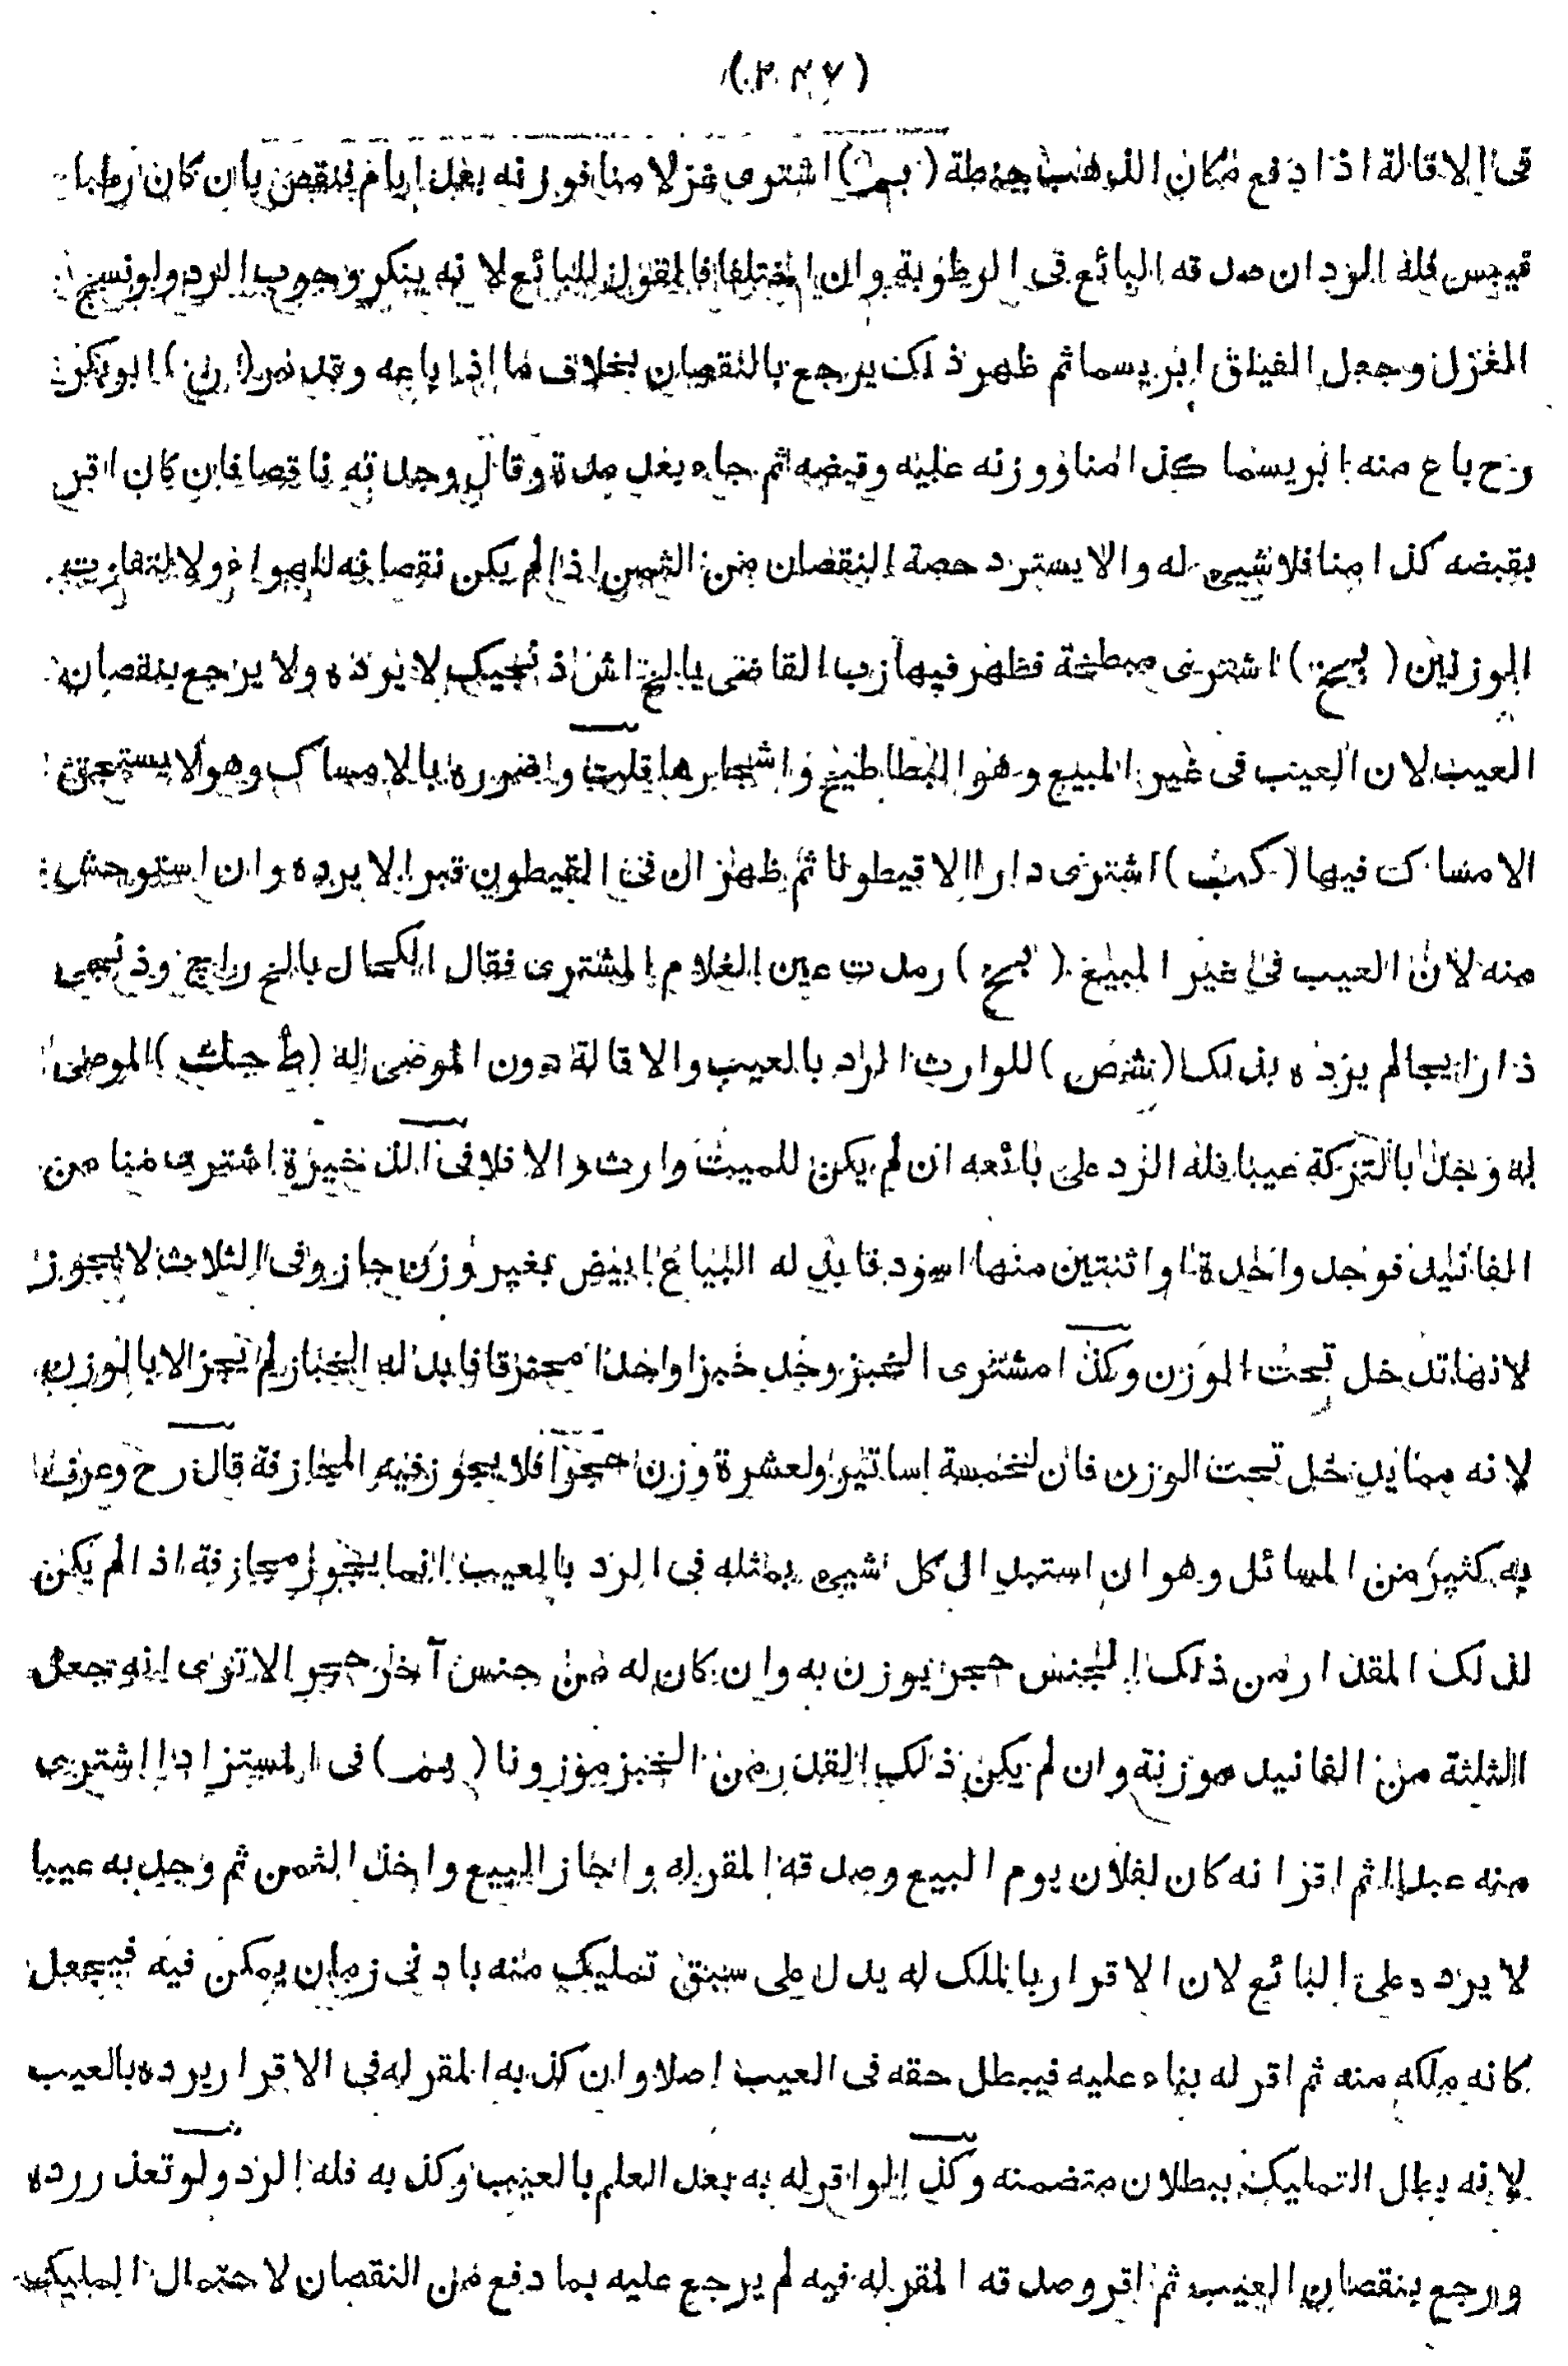 (٢٤٧)
فى الاقالة اذا دفع مكان الذهب حنطة (بم) اشترى غزلا منا فوزنه بعد ايام فنقص بان كان رطبا
فيبس فله الرد ان صدقه البائع فى الرطوبة وان اختلفا فالقول للبائع لانه ينكر وجوب الرد ولو نسج
الغزل وجعل الفيلق ابريسما ثم ظهر ذلك يرجع بالنقصان بخلاف ما اذا باعه وقد مر ابو بكر
رح باع منه ابريسما كذا منا ووزنه عليه وقبضه ثم جاء بعد مدة وقال وجدته ناقصا فان كان اقر
بقبضه كذا منا فلا شيىء له والا يسترد حصة النقصان من الثمن اذا لم يكن نقصانه للهواء ولا لتفاوت
الوزنين (بخ) اشترى مبطخة فظهر فيها زب القاضى لا يرده ولا يرجع بنقصان
العيب لان العيب فى غير المبيع وهو البطاطيخ واشجارها قلت واضرره بالامساك وهو لا يستحق
الامساك فيها (كب) اشترى دارا الا قيطونا ثم ظهر ان فى القيطون قبرا لا يرده وان استوحش
منه لان العيب فى غير المبيع (بخ) رمدت عين الغلام المشترى فقال الكحال
لم يرده بذلك (شص) للوارث الرد بالعيب والاقالة دون الموصى له (ط جلث) الموصى
له وجد بالتركة عيبا فله الرد على بائعه ان لم يكن للميت وارث والا فلا فى الذخيرة اشترى منا من
الفانيد فوجد واحدة او اثنتين منها اسود فابدله البياع ابيض بغير وزن جاز وفى الثلاث لا يجوز
لانها تدخل تحت الوزن وكذا مشترى الخبز وجد خبزا واحدا محترقا فابدله الخباز لم يجز الا بالوزن
لانه مما يدخل تحت الوزن فان لخمسة اساتير ولعشرة وزن حجرا فلا يجوز فيه المجازفة قال رح وعرف
به كثير من المسائل وهو ان استبدال كل شيىء بمثله فى الرد بالعيب انما يجوز مجازفة اذا لم يكن
لذلك المقدار من ذلك الجنس حجر يوزن به وان كان له من جنس آخر حجر الا ترى انه جعل
الثلثة من الفانيد موزنة وان لم يكن ذلك القدر من الخبز موزونا (بم) فى المستزاد اشترى
منه عبدا ثم اقر انه كان لفلان يوم البيع وصدقه المقر له واجاز البيع واخذ الثمن ثم وجد به عيبا
لا يرده على البائع لان الاقرار بالملك له يدل على سبق تمليك منه بادنى زمان يمكن فيه فيجعل
كانه ملكه منه ثم اقر له بناء عليه فيبطل حقه فى العيب اصلا وان كذبه المقر له فى الاقرار يرده بالعيب
لانه بطل التمليك ببطلان متضمنه وكذا لو اقر له به بعد العلم بالعيب وكذبه فله الرد ولو تعذر رده
ورجع بنقصان العيب ثم اقر وصدقه المقر له فيه لم يرجع عليه بما دفع من النقصان لاحتمال التمليك